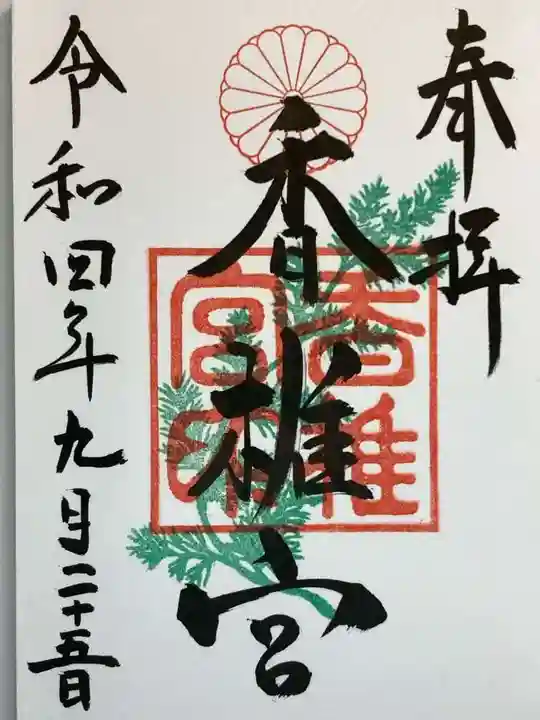 奉拝
香椎宮
香椎宮印
令和四年九月二十五日